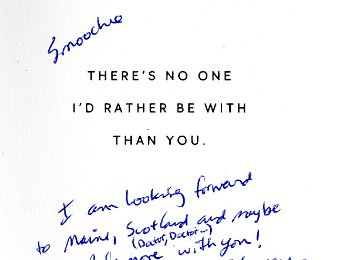 Smoochie
THERE'S NO ONE
I'D RATHER BE WITH
THAN YOU.
I am looking forward
to Maine, Scotland and maybe
(Doctor, Doctor...)
more with you!